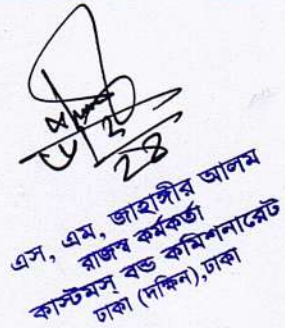 ২৪
এস, এম, জাহাঙ্গীর আলম
রাজস্ব কর্মকর্তা
কাস্টমস্ বন্ড কমিশনারেট
ঢাকা (দক্ষিন),ঢাকা